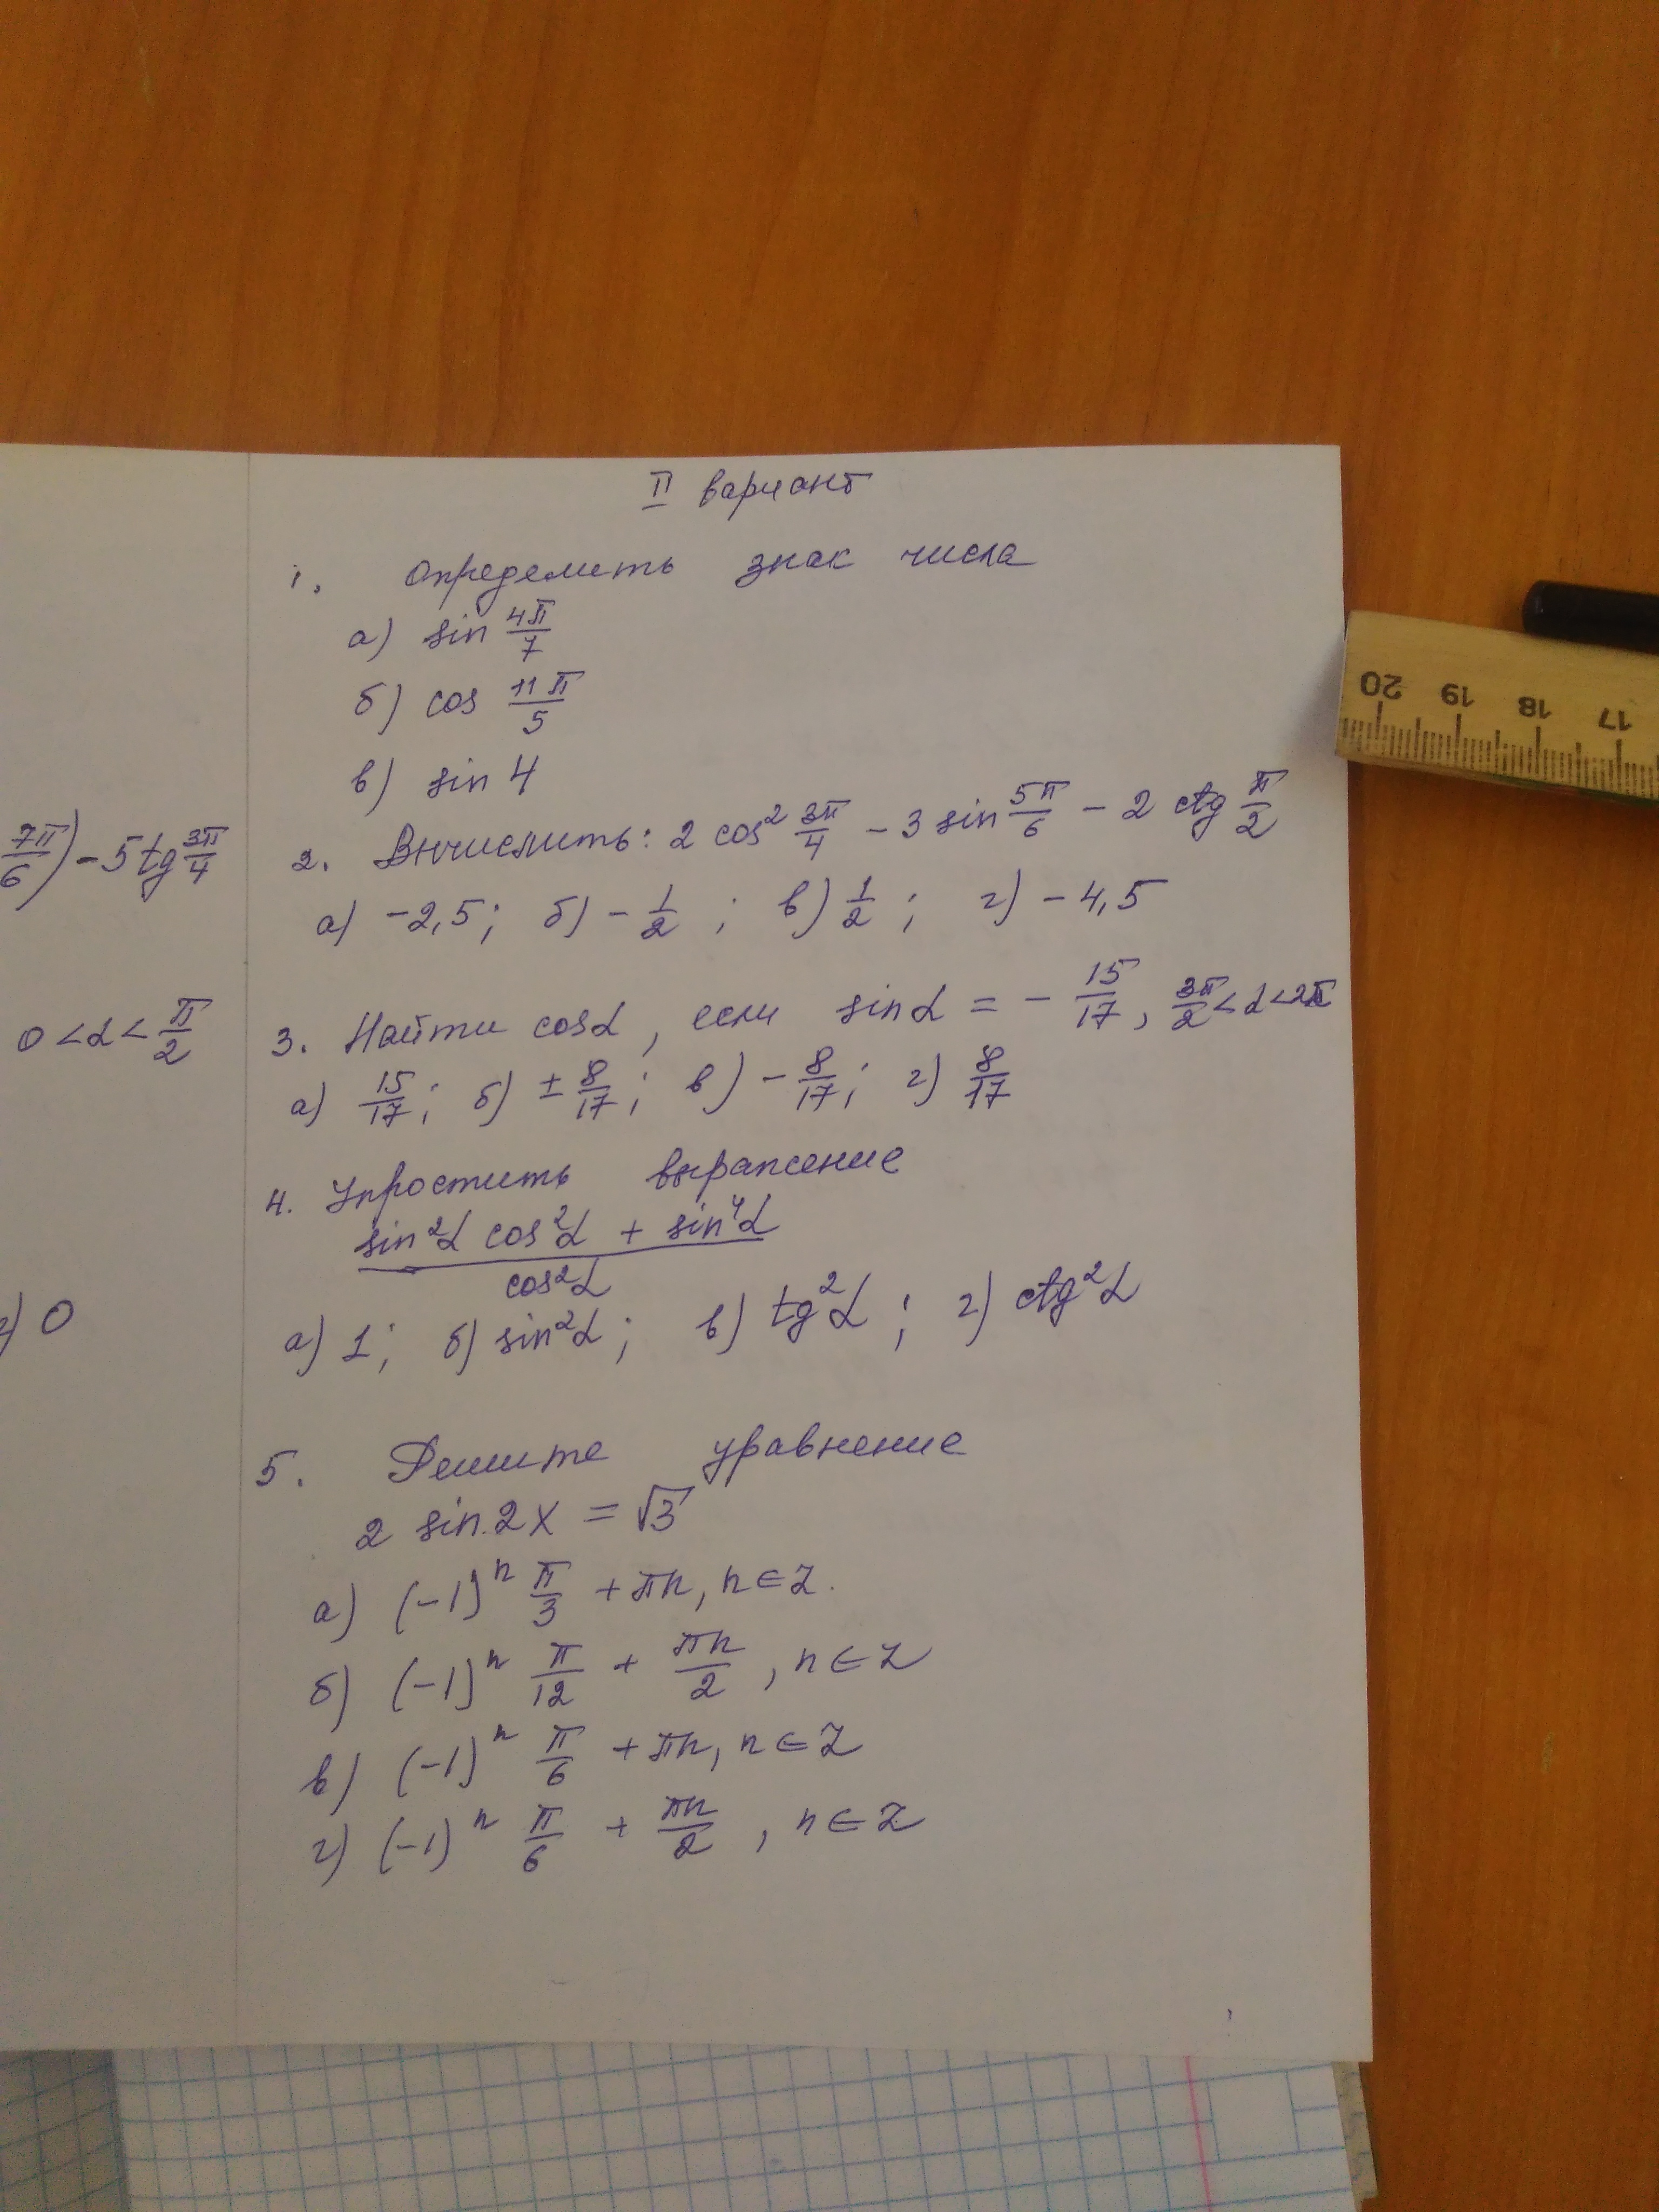 II вариант
1. Определить знак числа
а) sin 4π/7
б) cos 11π/5
в) sin 4
2. Вычислить: 2 cos² 3π/4 - 3 sin 5π/6 - 2 ctg π/2
а) -2,5; б) -1/2; в) 1/2; г) -4,5
3. Найти cosα, если sinα = -15/17, 3π/2 < α < 2π
а) 15/17; б) ± 8/17; в) -8/17; г) 8/17
4. Упростить выражение
sin²α cos²α + sin⁴α
cos²α
а) 1; б) sin²α; в) tg²α; г) ctg²α
5. Решите уравнение
2 sin 2x = √3
а) (-1)ⁿ π/3 + πn, n∈Z.
б) (-1)ⁿ π/12 + πn/2, n∈Z
в) (-1)ⁿ π/6 + πn, n∈Z
г) (-1)ⁿ π/6 + πn/2, n∈Z
7π/6) - 5 tg 3π/4
0 < α < π/2
) 0
20 19 18 17